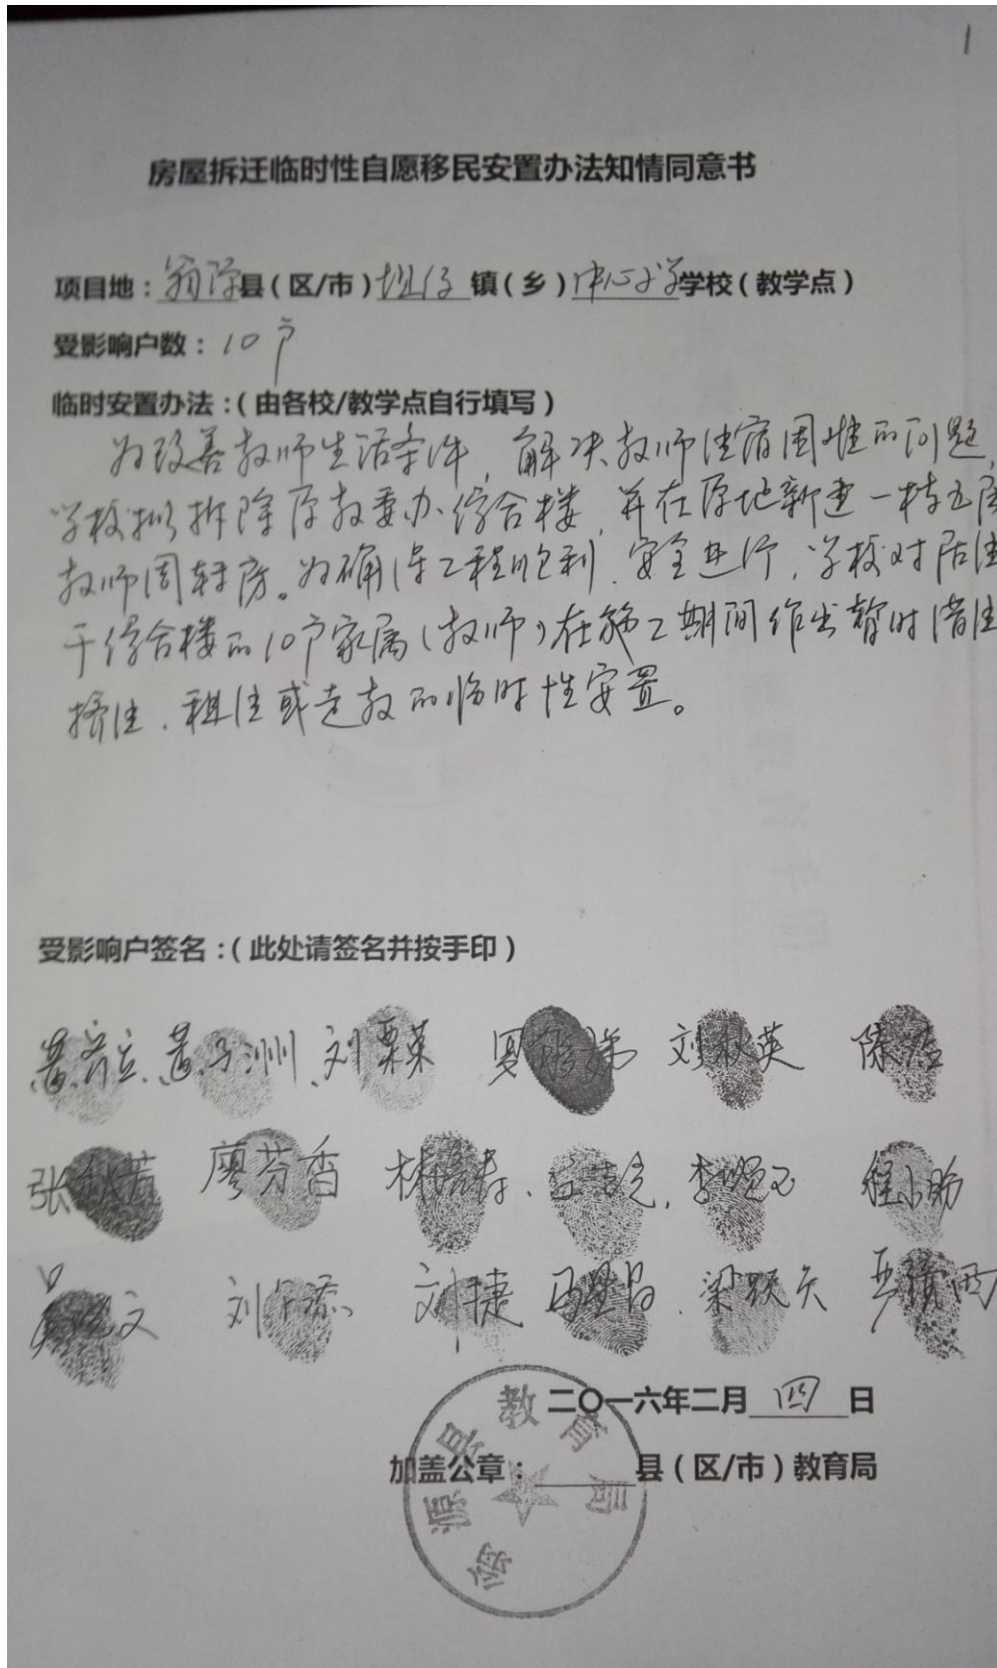 1
房屋拆迁临时性自愿移民安置办法知情同意书
项目地：翁源县（区/市）坝仔镇（乡）中心小学学校（教学点）
受影响户数：10户
临时安置办法：（由各校/教学点自行填写）
为改善教师生活条件，解决教师住宿困难的问题，
学校拟拆除原教委办综合楼，并在原地新建一栋五层
教师周转房。为确保工程顺利、安全进行，学校对居住
于综合楼的10户家属（教师）在施工期间作出暂时借住
挤住、租住或走教的临时性安置。
受影响户签名：（此处请签名并按手印）
刘翠英 刘秋英
张秋芳 廖芬香
刘捷 梁跃天
二〇一六年二月四日
加盖公章：县（区/市）教育局
翁源县教育局